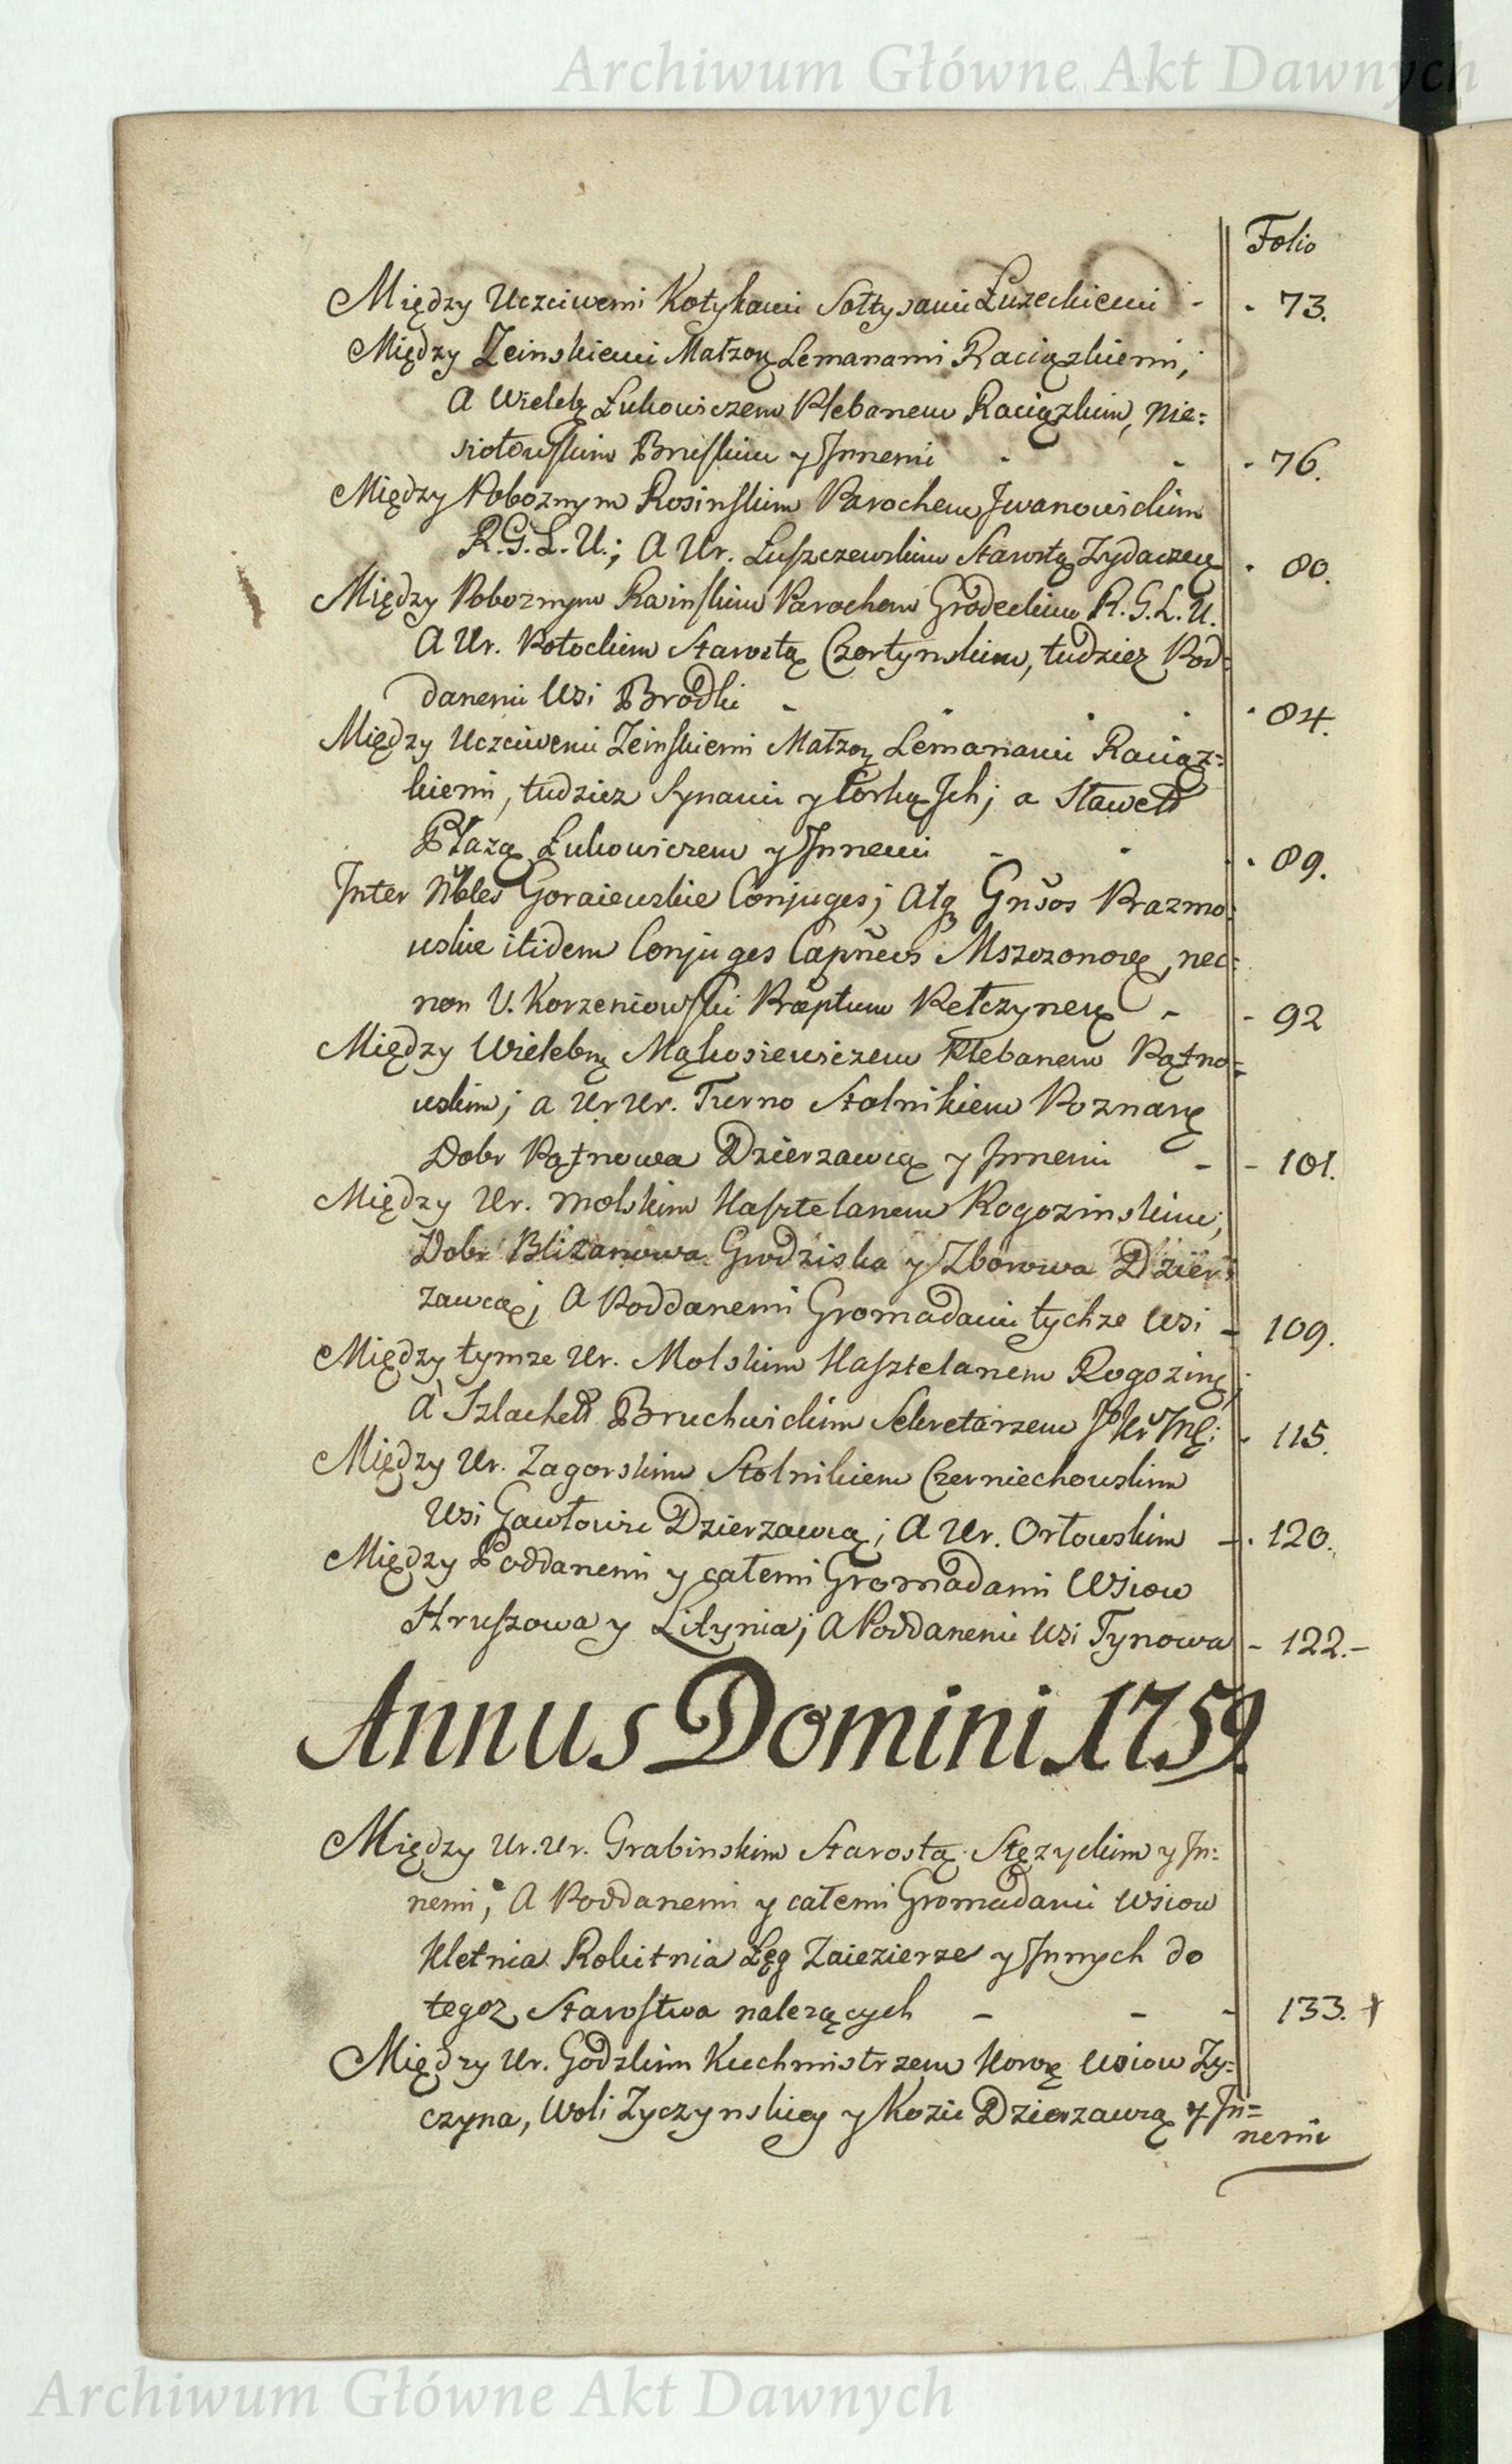 Archiwum Główne Akt Dawnych
Folio
Między Uczciwemi Kotykami Sołtysami Łuzeckiemi - - 73.
Między Zeinskiemi Małżoą Lemanami Raciązkiemi;
A Wielebą Łukowiczem Plebanem Raciązkim, Nie=
siołowskim Bruskim y Jnnemi - - - 76.
Między Pobożnym Rosinskim Parochem Jwanowickim
R.G.L.U.; A Ur. Łuszczewskim Starostą Zydaczeą - 80.
Między Pobożnym Rainskim Parochem Grodeckim R.G.L.U.
A Ur. Potockim Starostą Czortynskim, tudziez Pod=
danemi Wsi Brodki - - - - 84.
Między Uczciwemi Zeinskiemi Małzoą Lemanami Raciąz=
kiemi, tudziez Synami y Corką Jch; a Sławetd
Płazą Łukowiczem y Jnnemi - - - 89.
Jnter Nbles Goraiewskie Conjuges; Atq Gnsos Prazmo=
wskie itidem Conjuges Capneos Mszczonoweą, nec=
non V. Korzeniowski Præptum Rełczyneą - - 92
Między Wielebną Mąkosiewiczem Plebanem Pątno=
wskim; a UrUr. Turno Stolnikiem Poznaną
Dobr Pątnowa Dzierzawcą y Jnnemi - - 101.
Między Ur. Molskim Kasztelanem Rogozinskim,
Dobr Blizanowa Grodziska y Zborowa Dzier=
zawcą; A Poddanemi Gromadami tychze Wsi - 109.
Między tymze Ur. Molskim Kasztelanem Rogoziną;
A Szlachetd Bruchwickim Sekretarzem JKrMci - 115.
Między Ur. Zagorskim Stolnikiem Czerniechowskim
Wsi Gawłowic Dzierzawcą; A Ur. Orłowskim - 120.
Między Poddanemi y całemi Gromadami Wsiow
Hruszowa y Litynia; A Poddanemi Wsi Tynowa - 122.-
Annus Domini 1759.
Między Ur.Ur. Grabinskim Starostą Stęzyckim y Jn=
nemi; A Poddanemi y całemi Gromadami Wsiow
Kletnia Rokitnia Łęg Zaiezierze y Jnnych do
tegoz Starostwa nalezących - - - 133. +
Między Ur. Godzkim Kuchmistrzem Koroą Wsiow Zy=
czyna, Woli Zyczynskiey y Kozic Dzierzawcą y Jn=
nemi
Archiwum Główne Akt Dawnych